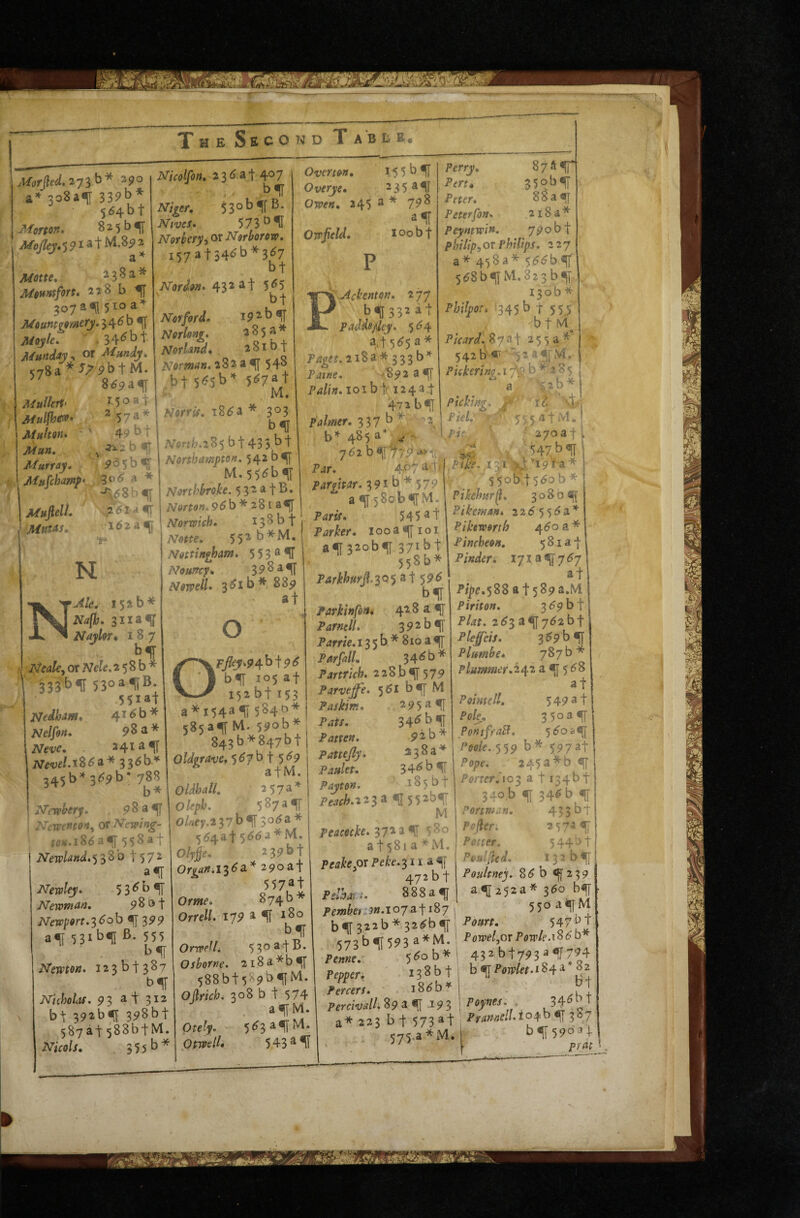 THE SECOND TABLE.
Morsted. 273 b * 290
a* 308 a ¶ 339 b *
564 b †
Morton. 825 b ¶
Mosley. 591 a † M. 892
a *
Motte. 238 a *
Mountfort. 228 b ¶
307 a ¶ 510 a *
Mountgomery. 346 b ¶
Moyle. 346 b †
Munday, or Mundy.
578 a * 579 b † M.
869 a ¶
Mullert. 150 a †
Mulshew. 257 a *
Multon. 49 b †
Mun. b ¶
Murray. 905 b ¶
Muschamp. 306 a *
568 b ¶
Mustell. 261 a ¶
Mutas. 162 a ¶
N
NAle. 152 b *
Nash. 311 a ¶
Naylor. 187
b ¶
Neale, or Nele. 258 b *
333 b ¶ 530 a ¶ B.
551 a †
Nedham. 416 b *
Nelson. 98 a *
Neve. 241 a ¶
Nevel. 186 a * 336 b *
345 b * 369 b * 788
b *
Newbery. 98 a ¶
Newenton, or Newing-
ton. 186 a ¶ 558 a †
Newland. 538 b † 572
a ¶
Newley. 536 b ¶
Newman. 98 b †
Newport. 360 b ¶ 399
a ¶ 531 b ¶ B. 555
b ¶
Newton. 123 b † 387
b ¶
Nicholas. 93 a † 312
b † 392 b ¶ 398 b †
587 a † 588 b † M.
Nicols. 355 b *
Nicolson. 236 a † 407
b ¶
Niger. 530 b ¶ B.
Nives. 573 b ¶
Norbery, or Norborow.
157 a † 346 b * 367
b †
Nordon. 432 a † 565
b †
Norford. 192 b ¶
Norlong. 285 a *
Norland. 281 b †
Norman. 282 a ¶ 548
b † 565 b * 567 a †
M.
Norris. 186 a * 303
b ¶
North. 285 b † 433 b †
Northampton. 542 b ¶
M. 556 b ¶
Northbroke. 532 a † B.
Norton. 96 b * 281 a ¶
Norwich. 138 b †
Notte. 552 b * M.
Nottingham. 553 a ¶
Nouncy. 398 a ¶
Nowell. 361 b * 889
a †
O
OFfley. 94 b † 96
b ¶ 105 a †
152 b † 153
a * 154 a ¶ 584 b *
585 a ¶ M. 590 b *
843 b * 847 b †
Oldgrave. 567 b † 569
a † M.
Oldhall. 257 a *
Oleph. 587 a ¶
Olney. 237 b ¶ 306 a *
564 a † 566 a * M.
Olysse. 239 b †
Organ. 136 a * 290 a †
557 a †
Orme. 874 b *
Orrell. 179 a ¶ 180
b ¶
Orwell. 530 a † B.
Osborne. 218 a * b ¶
588 b † 589 b ¶ M.
Ostrich. 308 b † 574
a ¶ M.
Otely. 563 a ¶ M.
Otwell. 543 a ¶
Overton. 155 b ¶
Overye. 235 a ¶
Owen. 245 a * 798
a ¶
Owfield. 100 b †
P
PAckenton. 277
b ¶ 332 a †
Paddesley. 564
a † 565 a *
Paget. 218 a * 333 b *
Paine. 892 a ¶
Palin. 101 b † 124 a †
472 b ¶
Palmer. 337 b *
b * 485 a *
762 b ¶ 779
Par. 407 a †
Pargitar. 391 b * 579
a ¶ 580 b ¶ M.
Paris. 545 a †
Parker. 100 a ¶ 101
a ¶ 320 b ¶ 371 b †
558 b *
Parkhurst. 305 a † 596
b ¶
Parkinson. 428 a ¶
Parnell. 392 b ¶
Parrie. 135 b * 810 a ¶
Parsall. 346 b *
Partrich. 228 b ¶ 579
Parvesse. 561 b ¶ M
Paskim. 295 a ¶
Pats. 346 b ¶
Patten. 92 b *
Pattesly. 238 a *
Paulet. 346 b ¶
Payton. 185 b †
Peach. 223 a ¶ 552 b ¶
M
Peacocke. 372 a ¶ 580
a † 581 a * M.
Peake, or Peke. 311 a ¶
472 b †
Pelham. 888 a ¶
Pemberton. 107 a † 187
b ¶ 322 b * 326 b ¶
573 b ¶ 593 a * M.
Penne. 560 b *
Pepper. 138 b †
Percers. 186 b *
Percivall. 89 a ¶ 193
a * 223 b † 573 a †
575 a * M.
Perry. 87 a ¶
Pert. 350 b ¶
Peter. 88 a ¶
Peterson. 218 a *
Peyntwin. 790 b †
Philip, or Philips. 227
a * 458 a * 566 b ¶
568 b ¶ M. 823 b ¶
130 b *
Philpot. 345 b † 555
b † M
Picard. 87 a † 255 a *
542 b ¶ a ¶ M.
Pickering. 179 b * 285
a b *
Picking.
Piel. 555 a † M.
Pie. 270 a †
547 b ¶
Pike. 191 a *
550 b † 560 b *
Pikehurst. 308 a ¶
Pikeman. 226 556 a *
Pikeworth 460 a *
Pincheon. 581 a †
Pinder. 171 a ¶ 767
a †
Pipe. 588 a † 589 a. M
Piriton. 369 b †
Plat. 263 a ¶ 762 b †
Plesseis. 369 b ¶
Plumbe. 787 b *
Plummer. 242 a ¶ 568
a †
Pointell. 549 a †
Pole. 350 a ¶
Pontfract. 560 a ¶
Poole. 559 b * 597 a †
Pope. 245 a * b ¶
Porter. 103 a † 134 b †
340 b ¶ 346 b ¶
Portman. 433 b †
Poster. 257 a ¶
Potter. 544 b †
Poulsted. 132 b ¶
Poultney. 86 b ¶ 239
a ¶ 252 a * 360 b ¶
550 a ¶ M
Pourt. 547 b †
Powel, or Powle. 186 b *
432 b † 793 a ¶ 794
b ¶ Powlet. 184 a * 82
b †
Poynes. 346 b †
Prannell. 104 b ¶ 387
b ¶ 590 a †
prat